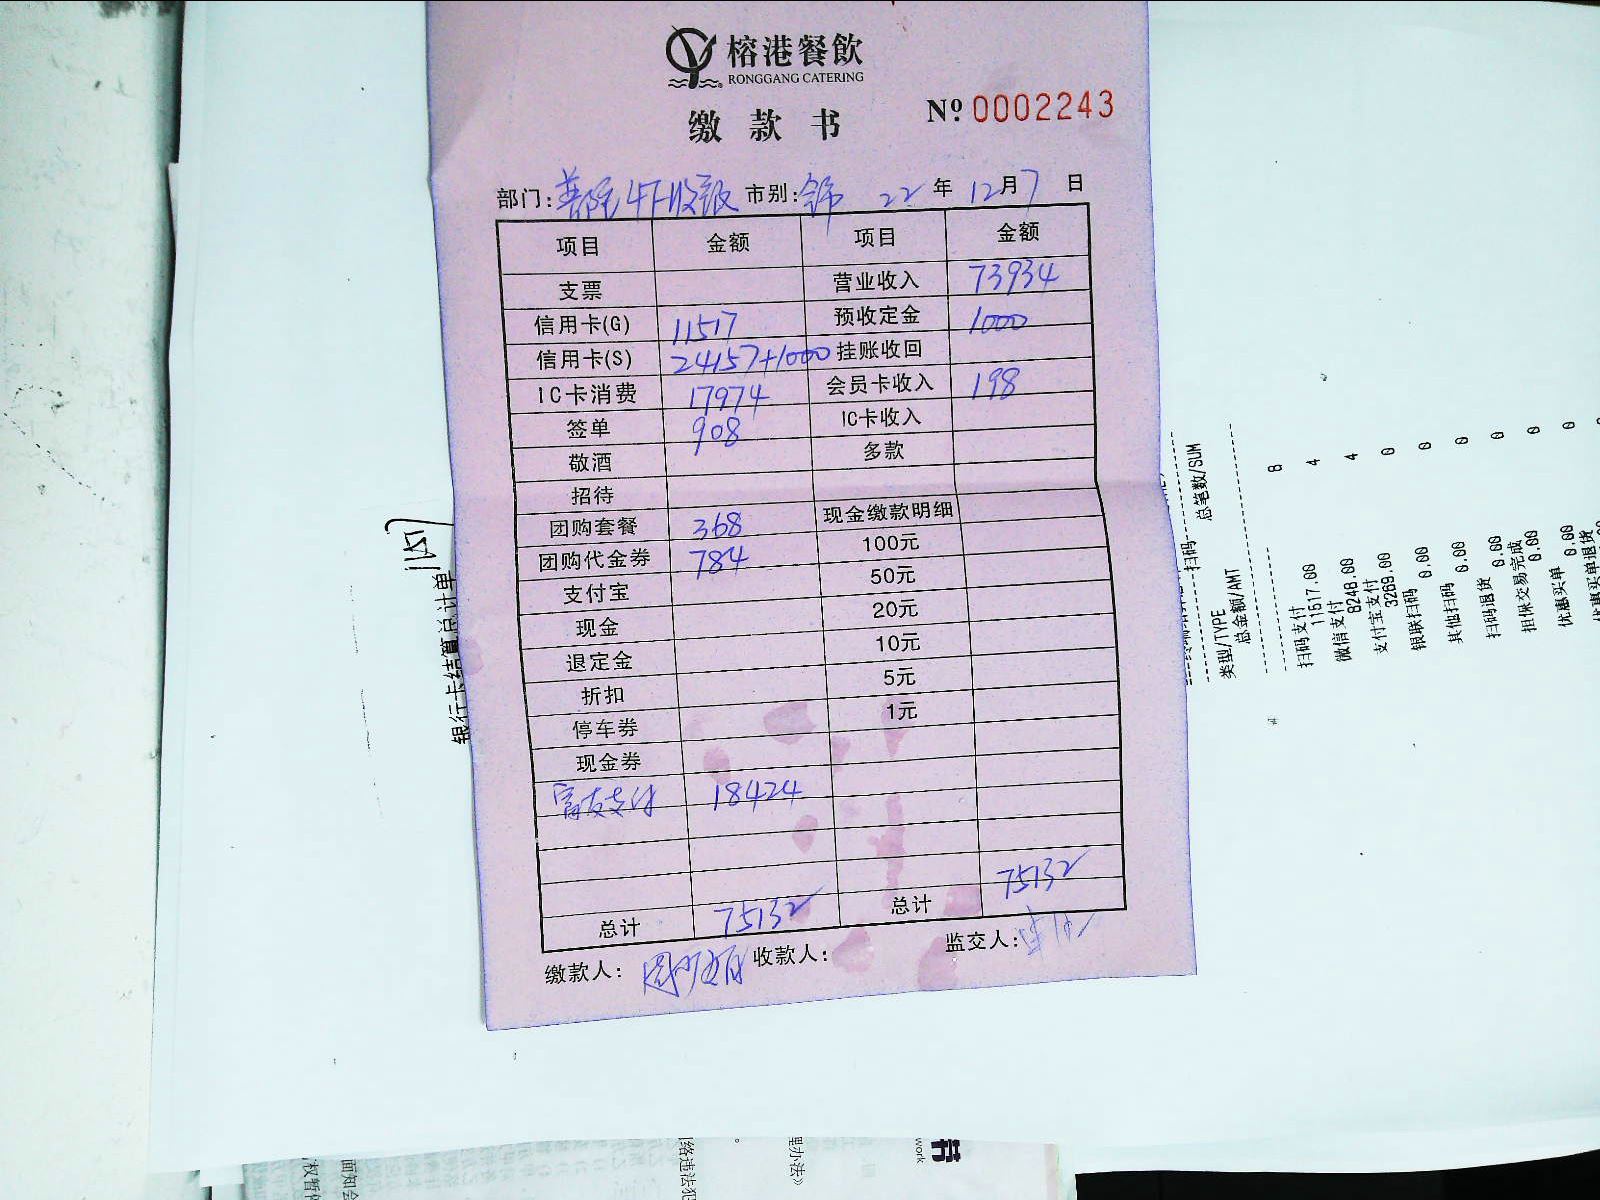 榕港餐飲
RONGGANG CATERING
缴款书
№ 0002243
部门: 4F收银 市别: 22年12月7日
项目 金额 项目 金额
支票 营业收入 73934
信用卡(G) 11517 预收定金 1000
信用卡(S) 24157+1000 挂账收回
IC卡消费 17974 会员卡收入 198
签单 908 IC卡收入
敬酒 多款
招待
团购套餐 368 现金缴款明细
团购代金券 784 100元
支付宝 50元
现金 20元
退定金 10元
折扣 5元
停车券 1元
现金券
富友支付 18424
总计 75132 总计 75132
缴款人: 收款人: 监交人:
11517
银行卡结算总计单
扫码
类型/TYPE 总笔数/SUM
总金额/AMT
8
扫码支付 4
11517.00
微信支付 4
8248.00
支付宝支付 0
3269.00
银联扫码 0
0.00
其他扫码 0
0.00
扫码退货 0
0.00
担保交易完成 0
0.00
优惠买单 0
0.00
优惠买单退货
权暂
面知会
络违法犯
理办法》
work